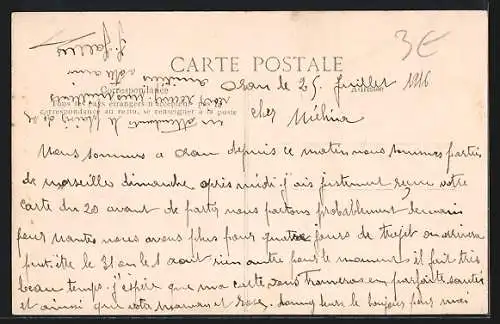 CARTE POSTALE
3€
Correspondance
Tous les pays étrangers n'acceptent pas de
correspondance au recto, se renseigner à la poste
Oran le 25 Juillet 1916
cher
Nous sommes a Oran depuis ce matin nous sommes partis
de marseille dimanche après midi j'ais justement reçu votre
carte du 20 avant de partir nous partons probablement demain
pour nantes nous avons plus pour quatre jours de trajet on arrivera
peut être le 31 ou le 1 aout rien autre pour le moment il fait très
beau temps. j'espère que ma carte vous trouveras en parfaite santée
et ainsi que votre maman et donnez leurs le bonjour pour moi
en attendant le plaisir de
vous
amitiés
votre ami